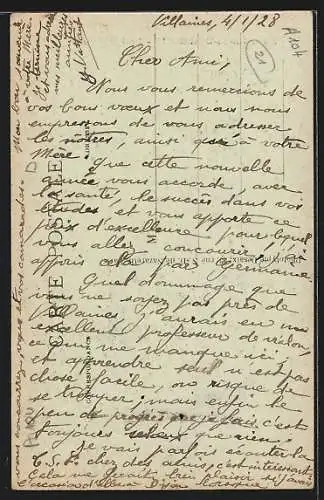 Villaines, 4/1/28
A104
21
Cher Ami,
Nous vous remercions de
vos bons vœux et nous nous
empressons de vous adresser
les nôtres, ainsi qu'à votre
Mère.
Que cette nouvelle
année vous accorde, avec
la santé, le succès dans vos
études et vous apporte ce
prix d'excellence pour lequel
vous allez concourir, j'ai
appris cela par Germaine
Quel dommage que
vous ne soyez pas près de
Villaines, j'aurais en vous un
excellent professeur de violon,
ce qui me manque ici,
et apprendre seul n'est pas
chose facile, on risque de
se tromper; mais enfin le
peu de progrès que je fais, c'est
toujours mieux que rien.
Je vais parfois écouter la
T.S.F. chez des amis, c'est intéressant.
Cela me ferait bien plaisir si j'avais
l'occasion d'aller à Dijon
CARTE POSTALE
CORRESPONDANCE